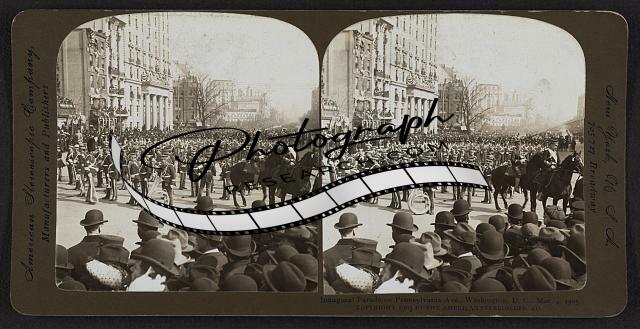 American Stereoscopic Company,
Manufacturers and Publishers
Photograph
RESEARCH.COM
New York, U. S. A.
Broadway
Inaugural Parade on Pennsylvania Ave., Washington, D. C., Mar. 4, 1905.
COPYRIGHT 1905 BY THE AMERICAN STEREOSCOPIC CO.